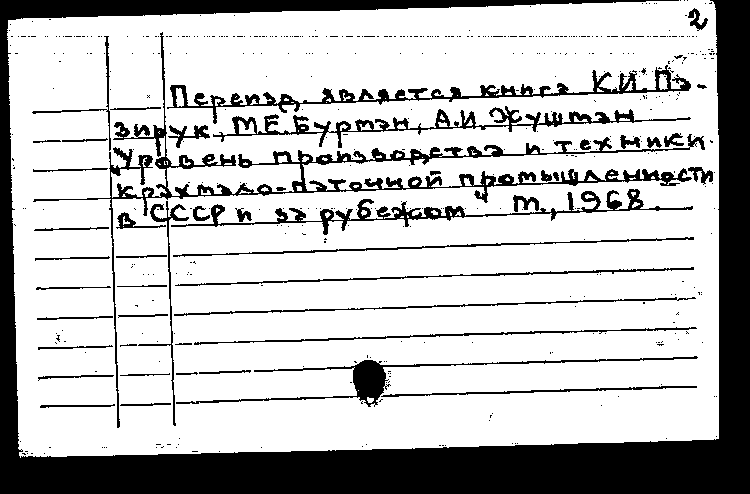 2
Переизд. является книга К.И. Па-
зирук, М.Е. Бурман, А.И. Жушман
"Уровень производства и техники
крахмало-паточной промышленности
в СССР и за рубежом" М., 1968.